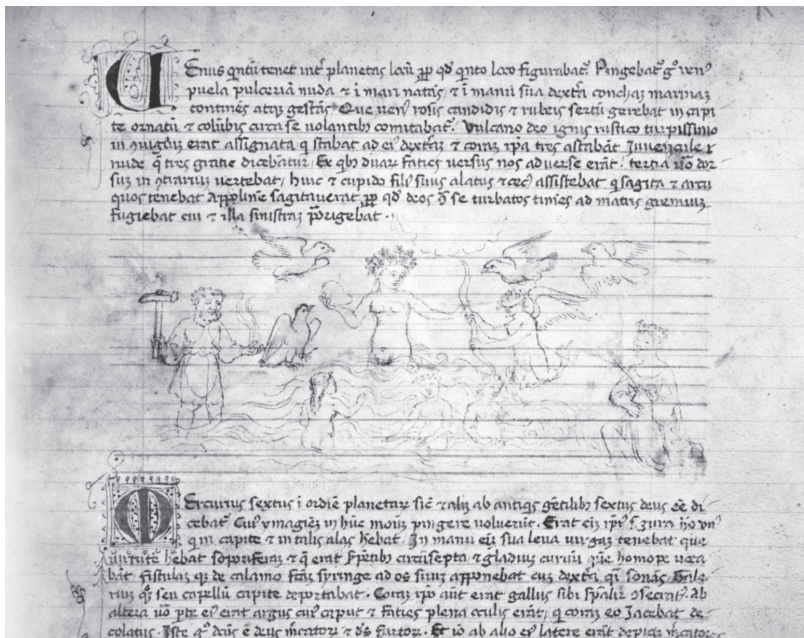 VEnus qntū tenet int̄ planetas locū ꝓp qd̄ qnto loco figurabat̄. Pingebat̄ gͦ venꝰ
puela pulcerīa nuda ⁊ ī mari natās ⁊ ī manu sua dextrā concham marinaꝫ
continēs atqꝫ gestās Que uenꝰ rosis candidis ⁊ rubeis sertū gerebat in capi
te ornatū ⁊ colūbis circa se uolantibꝫ comitabat̄. Vulcano deo ignis rustico turpissimo
in ꝯiugiū erat assignata q stabat ad eiꝰ dextraꝫ ⁊ coraꝫ ip̄a tres astabāt Juuencule
nude q̄ tres gratie dicebātur. Ex qbꝫ duaꝝ faties uersus nos aduerse erāt. tertia uͦo dor
suꝫ in ꝯtrariuꝫ uertebat, huic ⁊ cupido filiꝰ suus alatus ⁊ cecꝰ assistebat q sagita ⁊ arcu
quos tenebat appolinē sagitauerat ꝓp qd̄ deos ꝯ̄ se turbatos timēs ad matris gremiuꝫ
fugiebat cui ⁊ illa sinistraꝫ porigebat
MErcurius sextus ī ordiē planetaꝝ sic̄ ⁊ aliꝫ ab antiqs gētilibꝫ sextus deus eē di
cebat̄ Cuiꝰ ymagiēꝫ in hūc moduꝫ pingere uoluerūt. Erat
qui in capite ⁊ in talis alas hēbat. In manu eiꝰ sua leua uirgaꝫ tenebat que
uirtutē hēbat soporiferaꝫ ⁊ q̄ erat serpētibꝫ circūsepta, ⁊ gladiuꝫ curuū
bāt fistulaꝫ qꝫ de calamo fc̄aꝫ syringe ad os suuꝫ apponebat cuꝫ dextra
riuꝫ qꝫ seu capellū capite deportabat. Coraꝫ ip̄o aut̄ erat gallus sibi ꝯsecratꝰ. Ab
altera uͦo pte eiꝰ erat argus cuiꝰ caput ⁊ faties plena oculis erāt, q coraꝫ eo Jacebat de
colatus. Iste gͦ deus ē deus mͨcatoꝝ ⁊ furtoꝝ. Et iͦo ab alio eiꝰ latere erāt mͨcatores